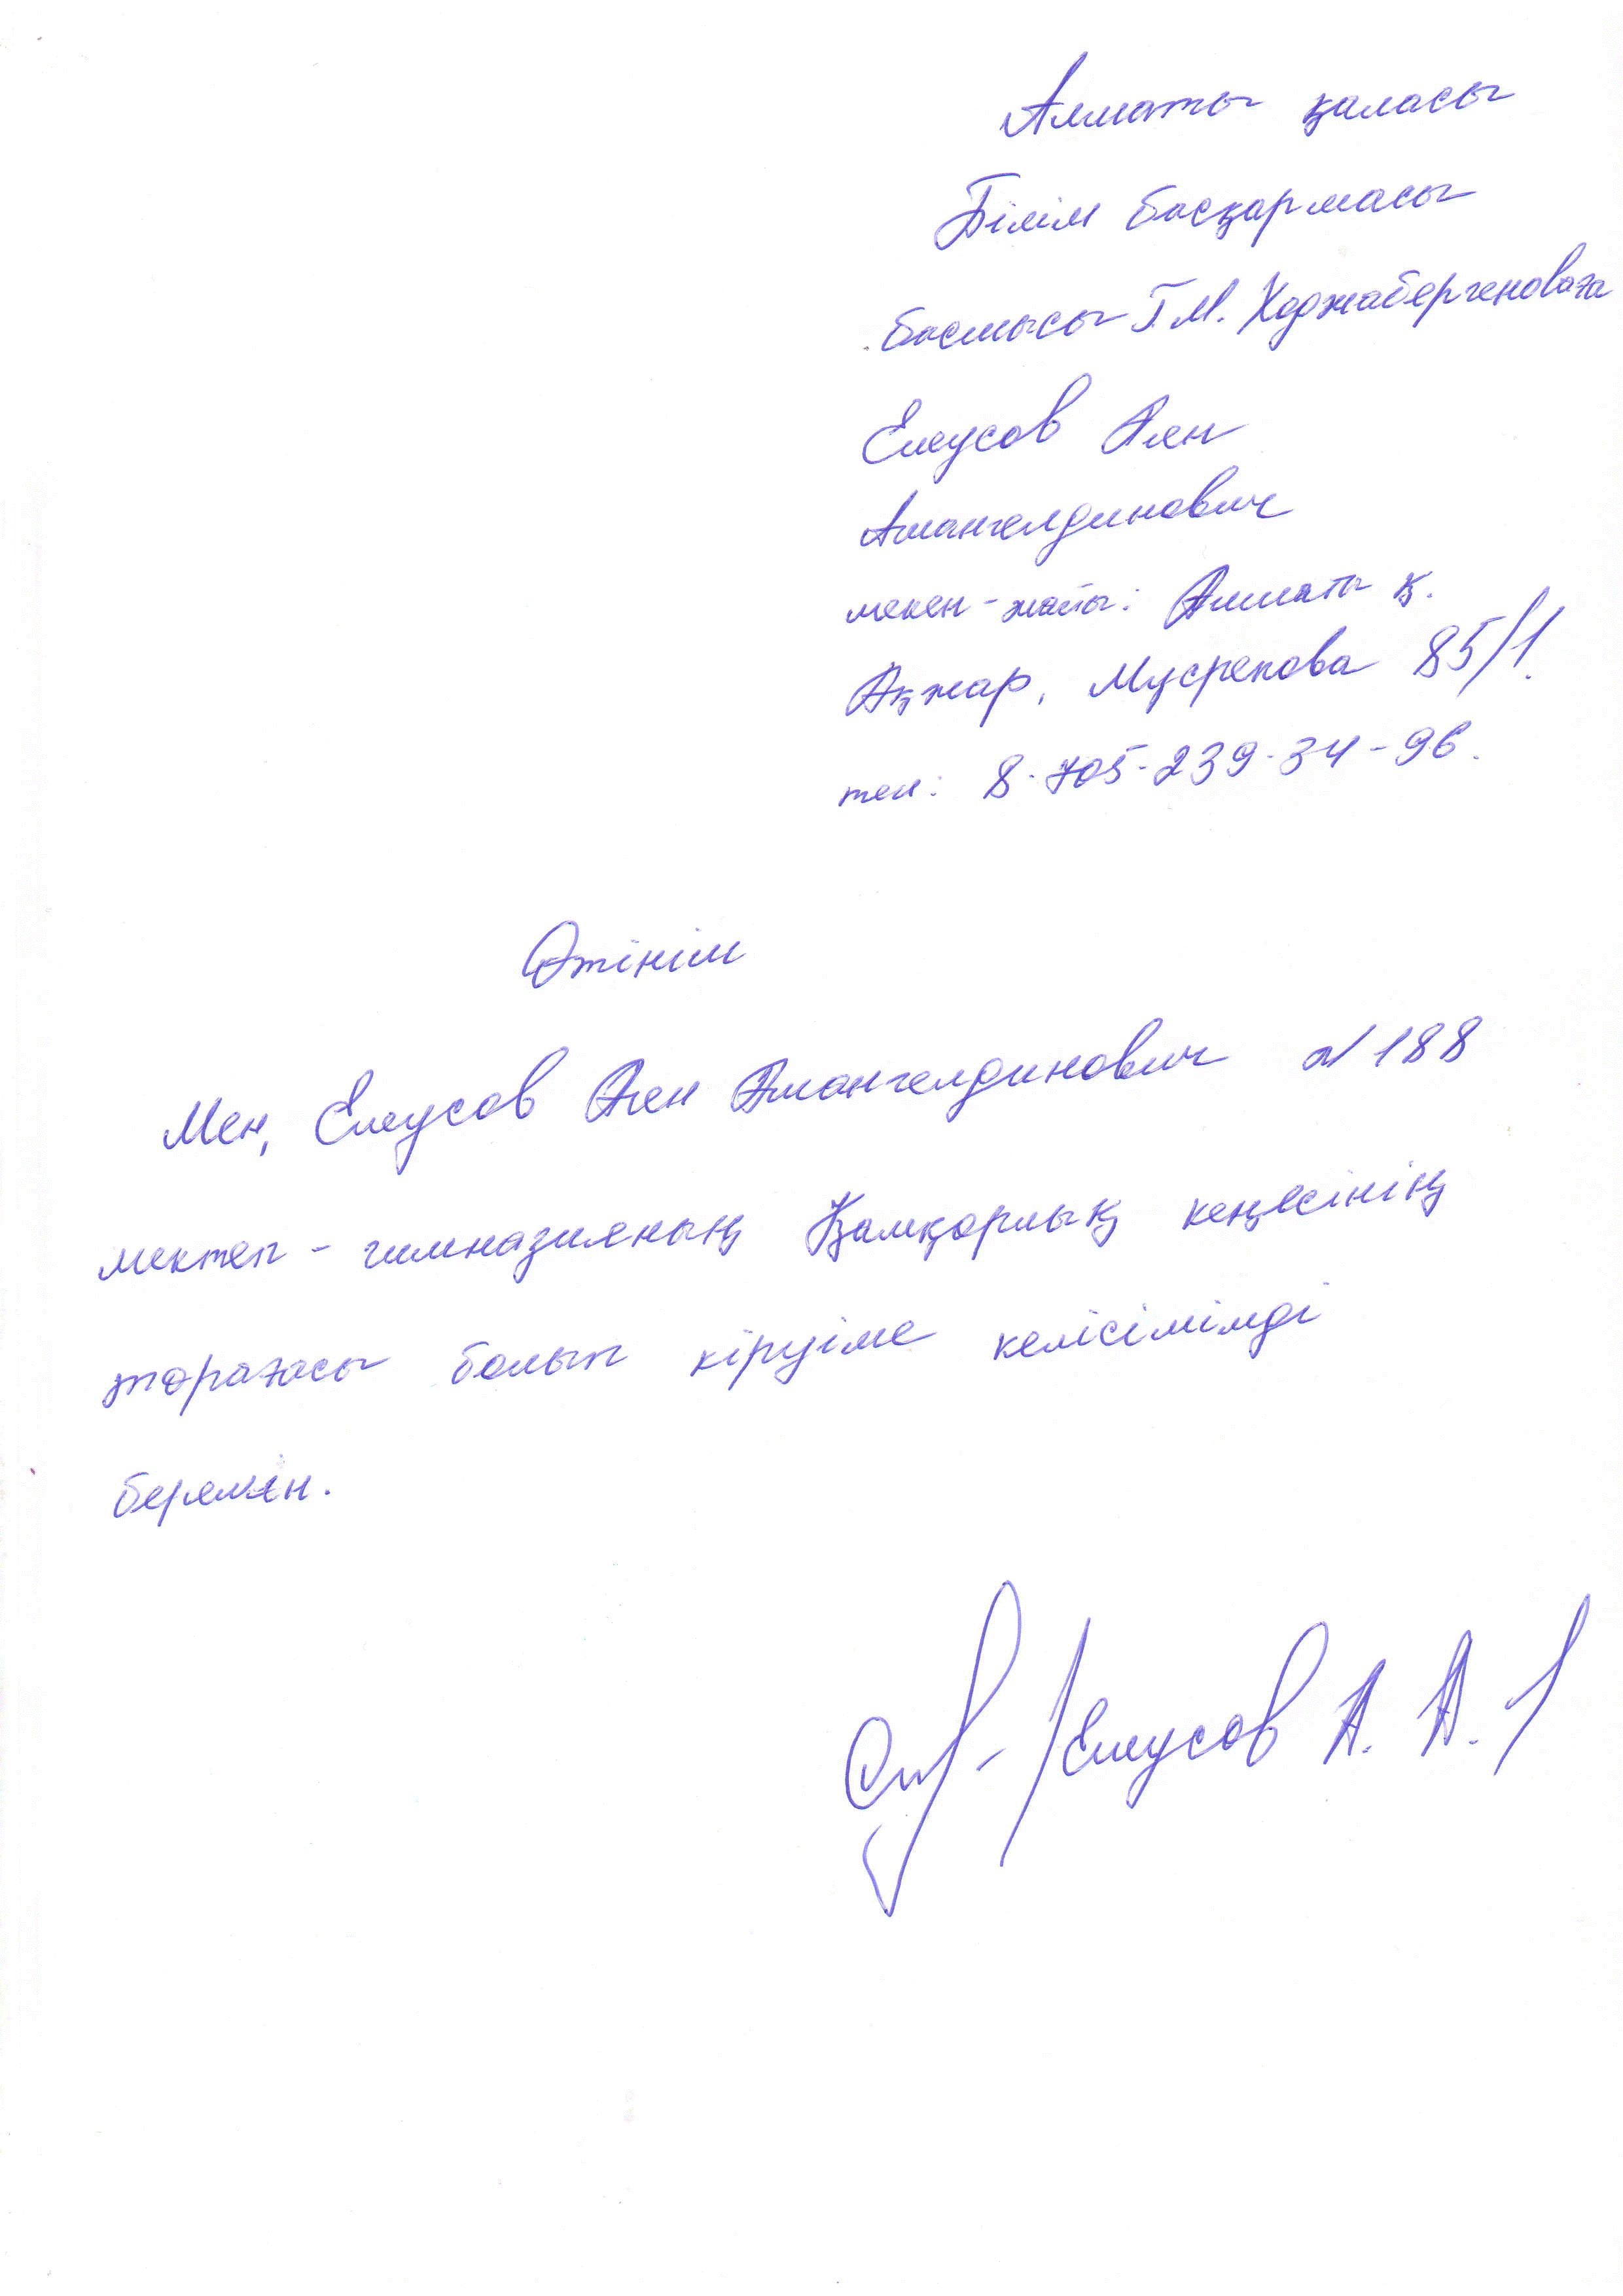 Алматы қаласы
Білім басқармасы
басшысы Г.М. Ходжабергеноваға
Елеусов Аян
Амангелдинович
мекен-жайы: Алматы қ.
Ақжар, Мусрепова 85/1.
тел: 8-705-239-34-96.
Өтінім
Мен, Елеусов Аян Амангелдинович №188
мектеп-гимназияның Қамқорлық кеңесінің
төрағасы болып кіруіме келісімімді
беремін.
/Елеусов А. А. /